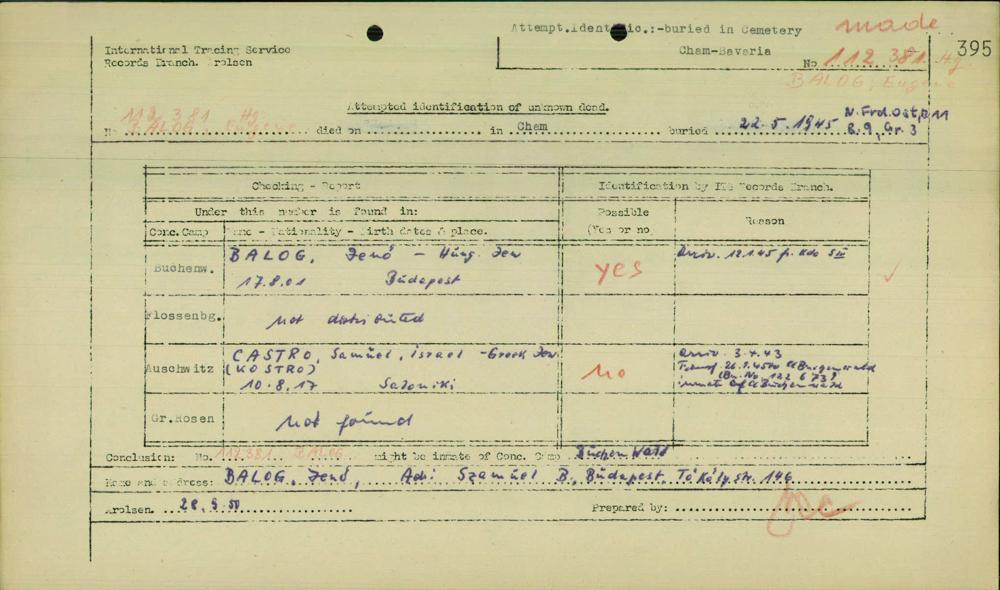 Attempt.Identific.:-buried in Cemetery
made
Cham-Bavaria
395
International Tracing Service
Records Branch. Arolsen
No 112 381 Hg.
BALOG, Eugene
Attempted identification of unknown dead.
112 381 Hg.
No BALOG, Eugene died on in Cham buried 22.5.1945 N.Frd.Ost, B 11
R.9, Gr.3
Checking - Report
Identification by ITS Records Branch.
Under this number is found in:
Possible
(Yes or no
Reason
Conc.Camp
Name - Nationality - Birth dates & place.
Buchenw.
BALOG, Jenö - Hung. Jew
17.8.01 Budapest
yes
Arriv. 12.1.45 fr. Kdo SIII
Flossenbg.
not distributed
Auschwitz
CASTRO, Samuel, israel - Greek Jew
(KOSTRO)
10.8.17 Saloniki
No
Arriv. 3.4.43
Transf. 26.1.45 to Cl Buchenwald
(Bu. No. 122 673)
inmate of Cl Buchenwald
Gr.Rosen
not found
Conclusion: No. 112.381 BALOG might be inmate of Conc. Camp Buchenwald
Name and address: BALOG, Jenö, Adr: Szamuel B., Budapest,
146
Arolsen. 28.9.50
Prepared by: